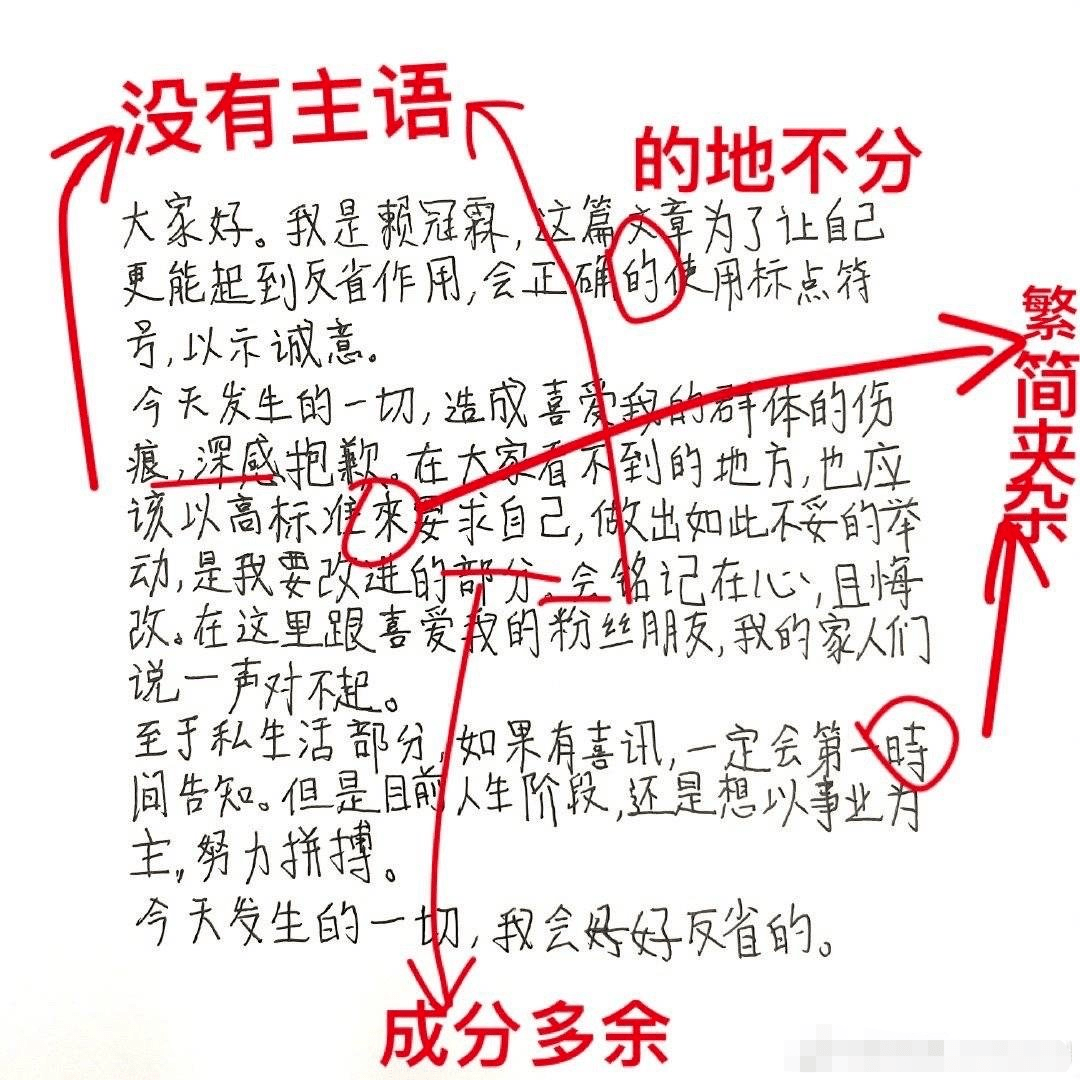 没有主语
的地不分
大家好。我是赖冠霖，这篇文章为了让自己
更能起到反省作用，会正确的使用标点符
号，以示诚意。
今天发生的一切，造成喜爱我的群体的伤
痕，深感抱歉。在大家看不到的地方，也应
该以高标准來要求自己，做出如此不妥的举
动，是我要改进的部分。会铭记在心，且悔
改。在这里跟喜爱我的粉丝朋友，我的家人们
说一声对不起。
至于私生活部分，如果有喜讯，一定会第一時
间告知。但是目前人生阶段，还是想以事业为
主，努力拼搏。
今天发生的一切，我会好好反省的。
繁简夹杂
成分多余